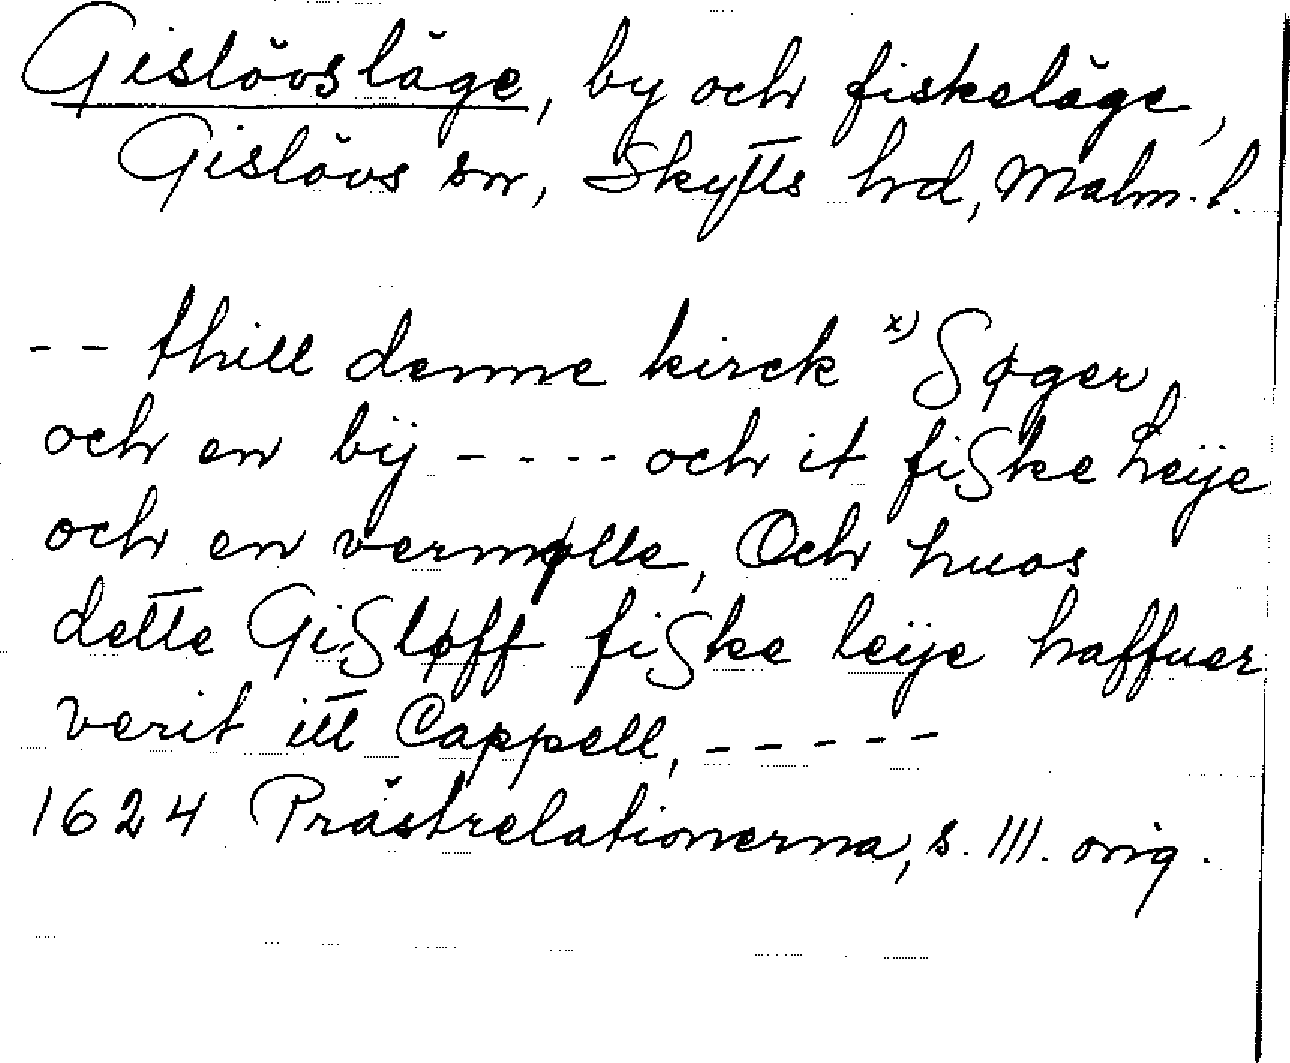 Gislövsläge, by och fiskeläge,
Gislövs sn, Skytts hd, Malm. l.
-- thill denne kirck x) Søger
och en bÿ ---- och it fiske leÿe
och en vermølle, Och huos
dette Gisløff fiske leÿe haffuer
verit itt Cappell, -----
1624 Prästrelationerna, s. 111. orig.